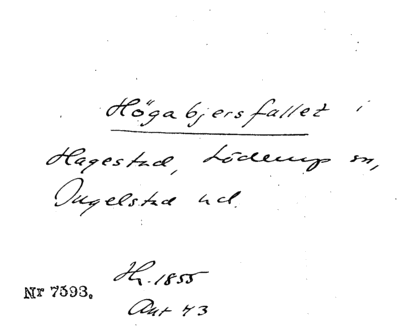 Högabjersfallet i
Hagestad, Löderup sn,
Ingelstad hd.
Nr 7593.
Hr. 1855
Ant 43